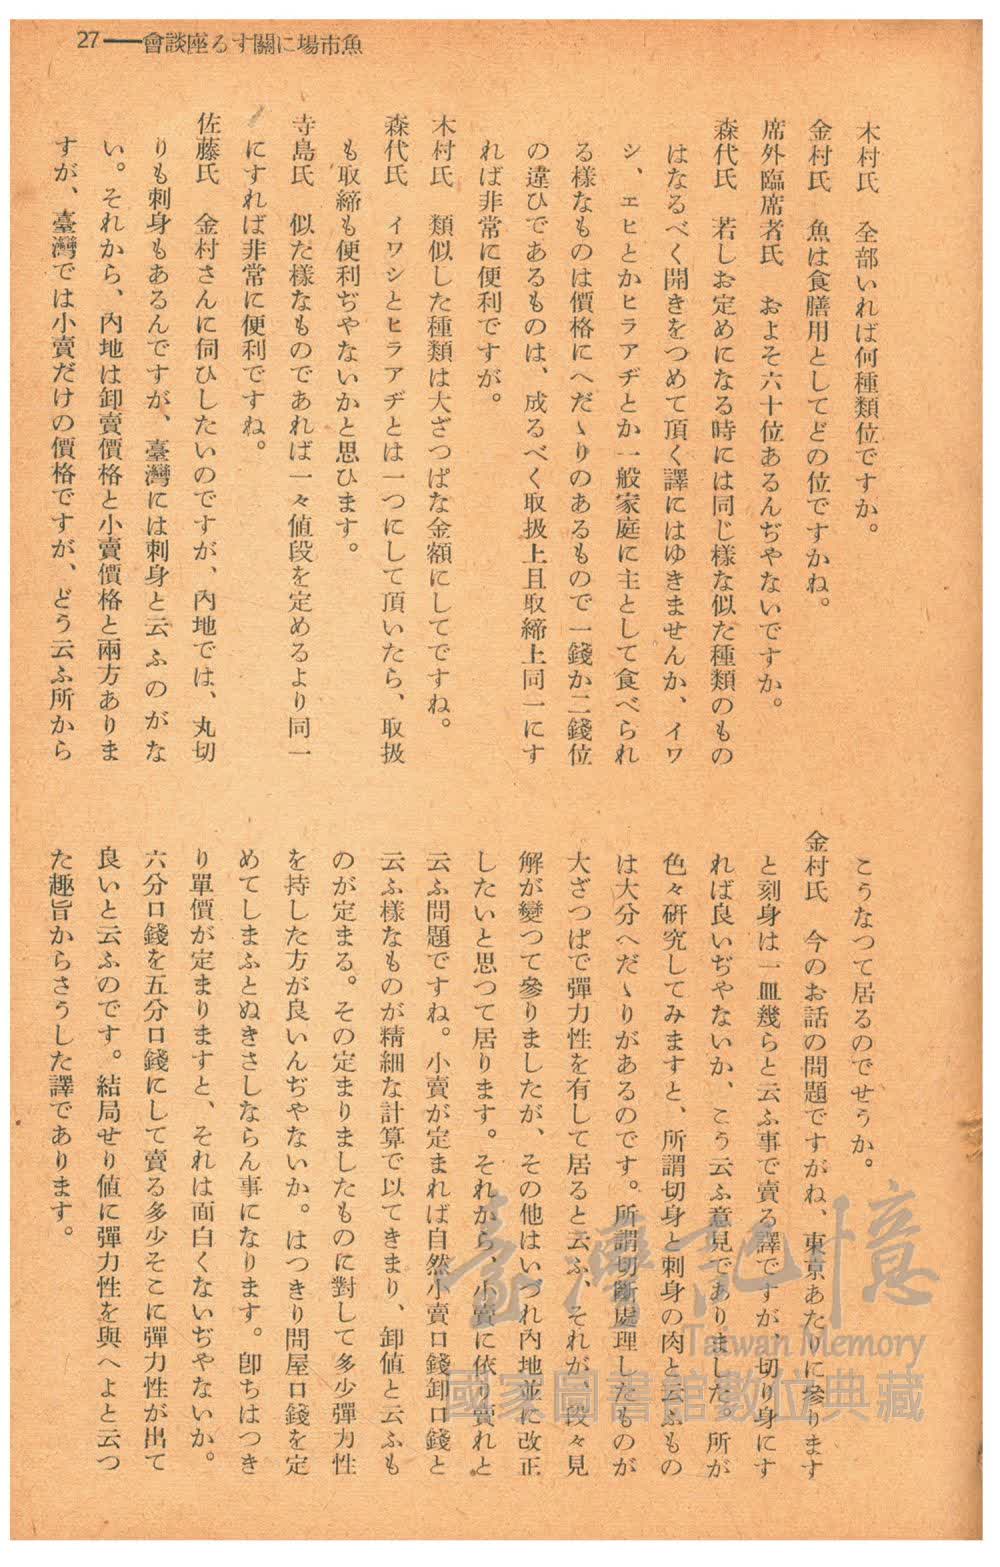 魚市場に關する座談會――27
木村氏　全部いれば何種類位ですか。
金村氏　魚は食膳用としてどの位ですかね。
席外臨席者氏　およそ六十位あるんぢやないですか。
森代氏　若しお定めになる時には同じ樣な似た種類のもの
はなるべく開きをつめて頂く譯にはゆきませんか、イワ
シ、エヒとかヒラアヂとか一般家庭に主として食べられ
る樣なものは價格にへだゝりのあるもので一錢か二錢位
の違ひであるものは、成るべく取扱上且取締上同一にす
れば非常に便利ですが。
木村氏　類似した種類は大ざつぱな金額にしてですね。
森代氏　イワシとヒラアヂとは一つにして頂いたら、取扱
も取締も便利ぢやないかと思ひます。
寺島氏　似た樣なものであれば一々値段を定めるより同一
にすれば非常に便利ですね。
佐藤氏　金村さんに伺ひしたいのですが、內地では、丸切
りも刺身もあるんですが、臺灣には刺身と云ふのがな
い。それから、內地は卸賣價格と小賣價格と兩方ありま
すが、臺灣では小賣だけの價格ですが、どう云ふ所から
こうなつて居るのでせうか。
金村氏　今のお話の問題ですがね、東京あたりに參ります
と刻身は一皿幾らと云ふ事で賣る譯ですが、切り身にす
れば良いぢやないか、こう云ふ意見でありました。所が
色々硏究してみますと、所謂切身と刺身の肉と云ふもの
は大分へだゝりがあるのです。所謂切斷處理したものが
大ざつぱで彈力性を有して居ると云ふ、それが、段々見
解が變つて參りましたが、その他はいづれ內地並に改正
したいと思つて居ります。それから、小賣に依り賣れと
云ふ問題ですね。小賣が定まれば自然小賣口錢卸口錢と
云ふ樣なものが精細な計算で以てきまり、卸値と云ふも
のが定まる。その定まりましたものに對して多少彈力性
を持した方が良いんぢやないか。はつきり問屋口錢を定
めてしまふとぬきさしならん事になります。卽ちはつき
り單價が定まりますと、それは面白くないぢやないか。
六分口錢を五分口錢にして賣る多少そこに彈力性が出て
良いと云ふのです。結局せり値に彈力性を與へよと云つ
た趣旨からさうした譯であります。
臺灣記憶
Taiwan Memory
國家圖書館數位典藏